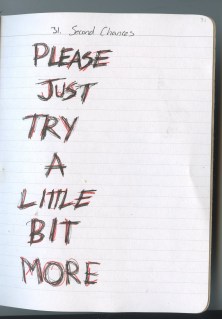 31. Second Chances
PLEASE
JUST
TRY
A
LITTLE
BIT
MORE